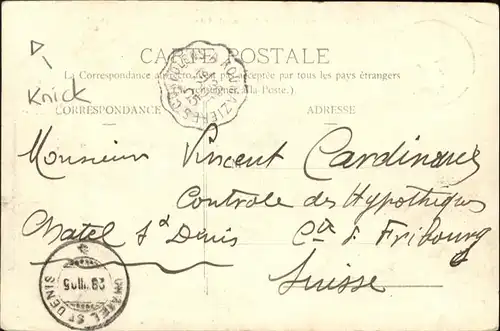 CARTE POSTALE
La Correspondance au recto n'est pas acceptée par tous les pays étrangers
(Se renseigner à la Poste.)
Knick
CORRESPONDANCE ADRESSE
Monsieur Vincent Cardinaux
Controle des Hypothèques
Chatel St Denis Cto d. Fribourg
Suisse
CHATEL ST DENIS